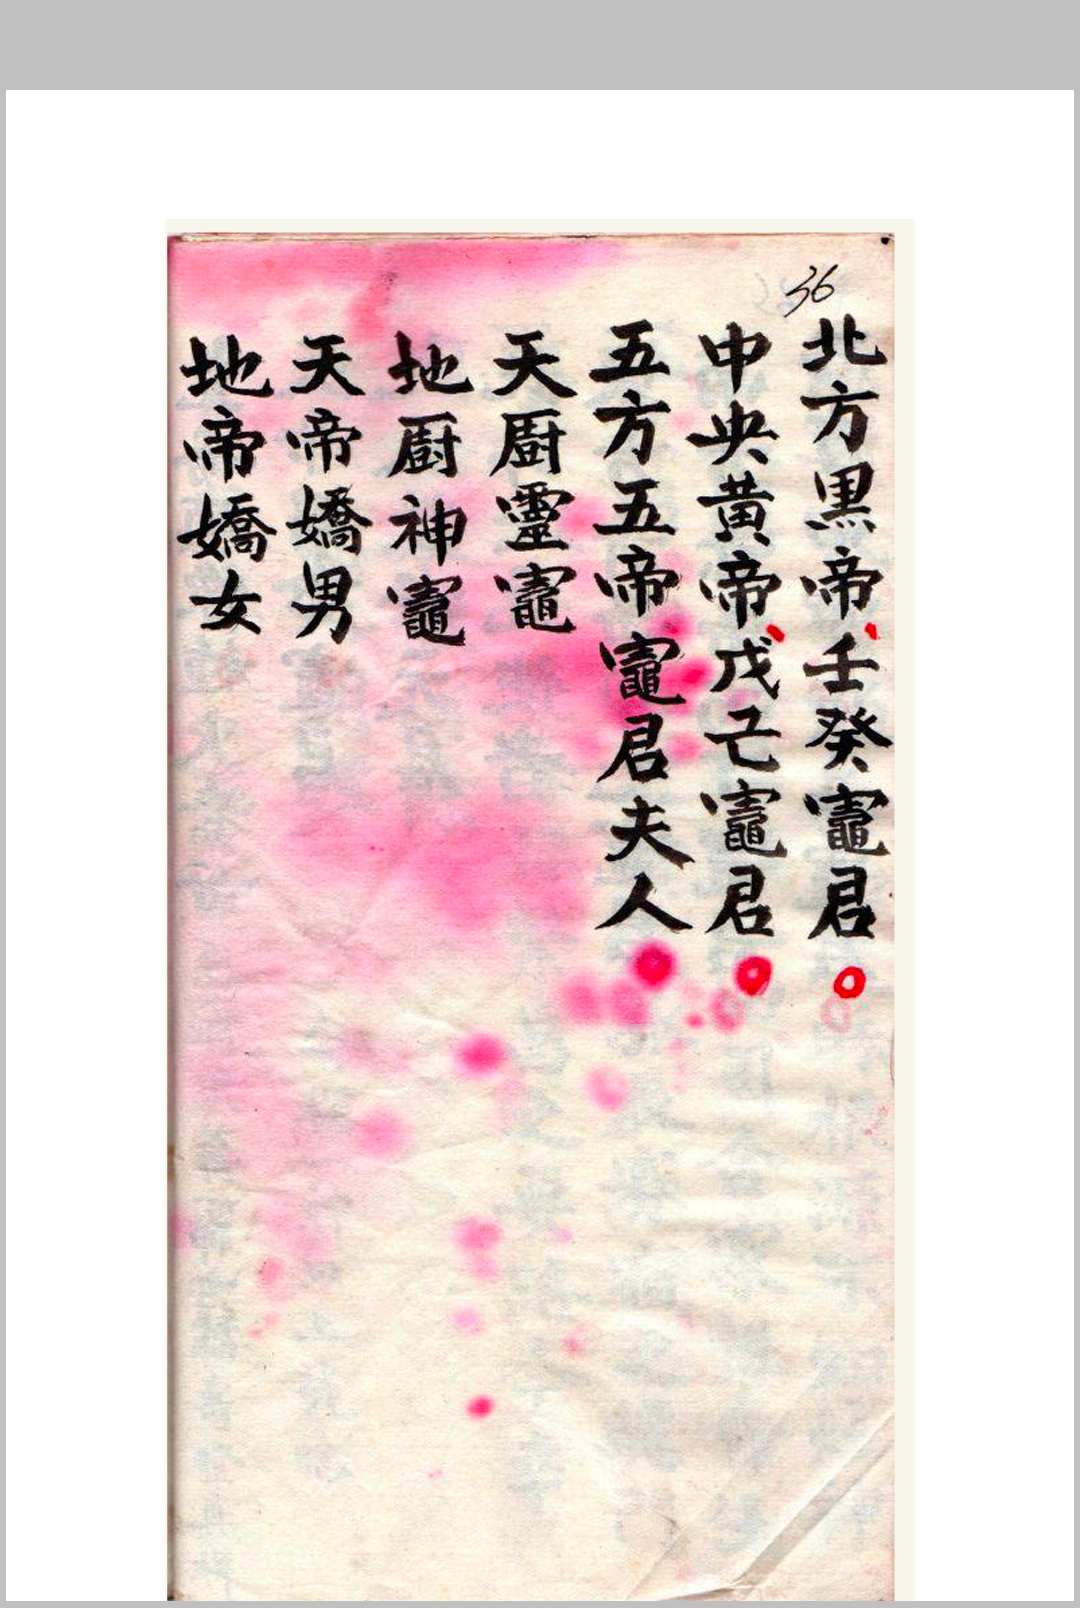 36
北方黑帝壬癸竈君
中央黃帝戊己竈君
五方五帝竈君夫人
天廚靈竈
地廚神竈
天帝嬌男
地帝嬌女